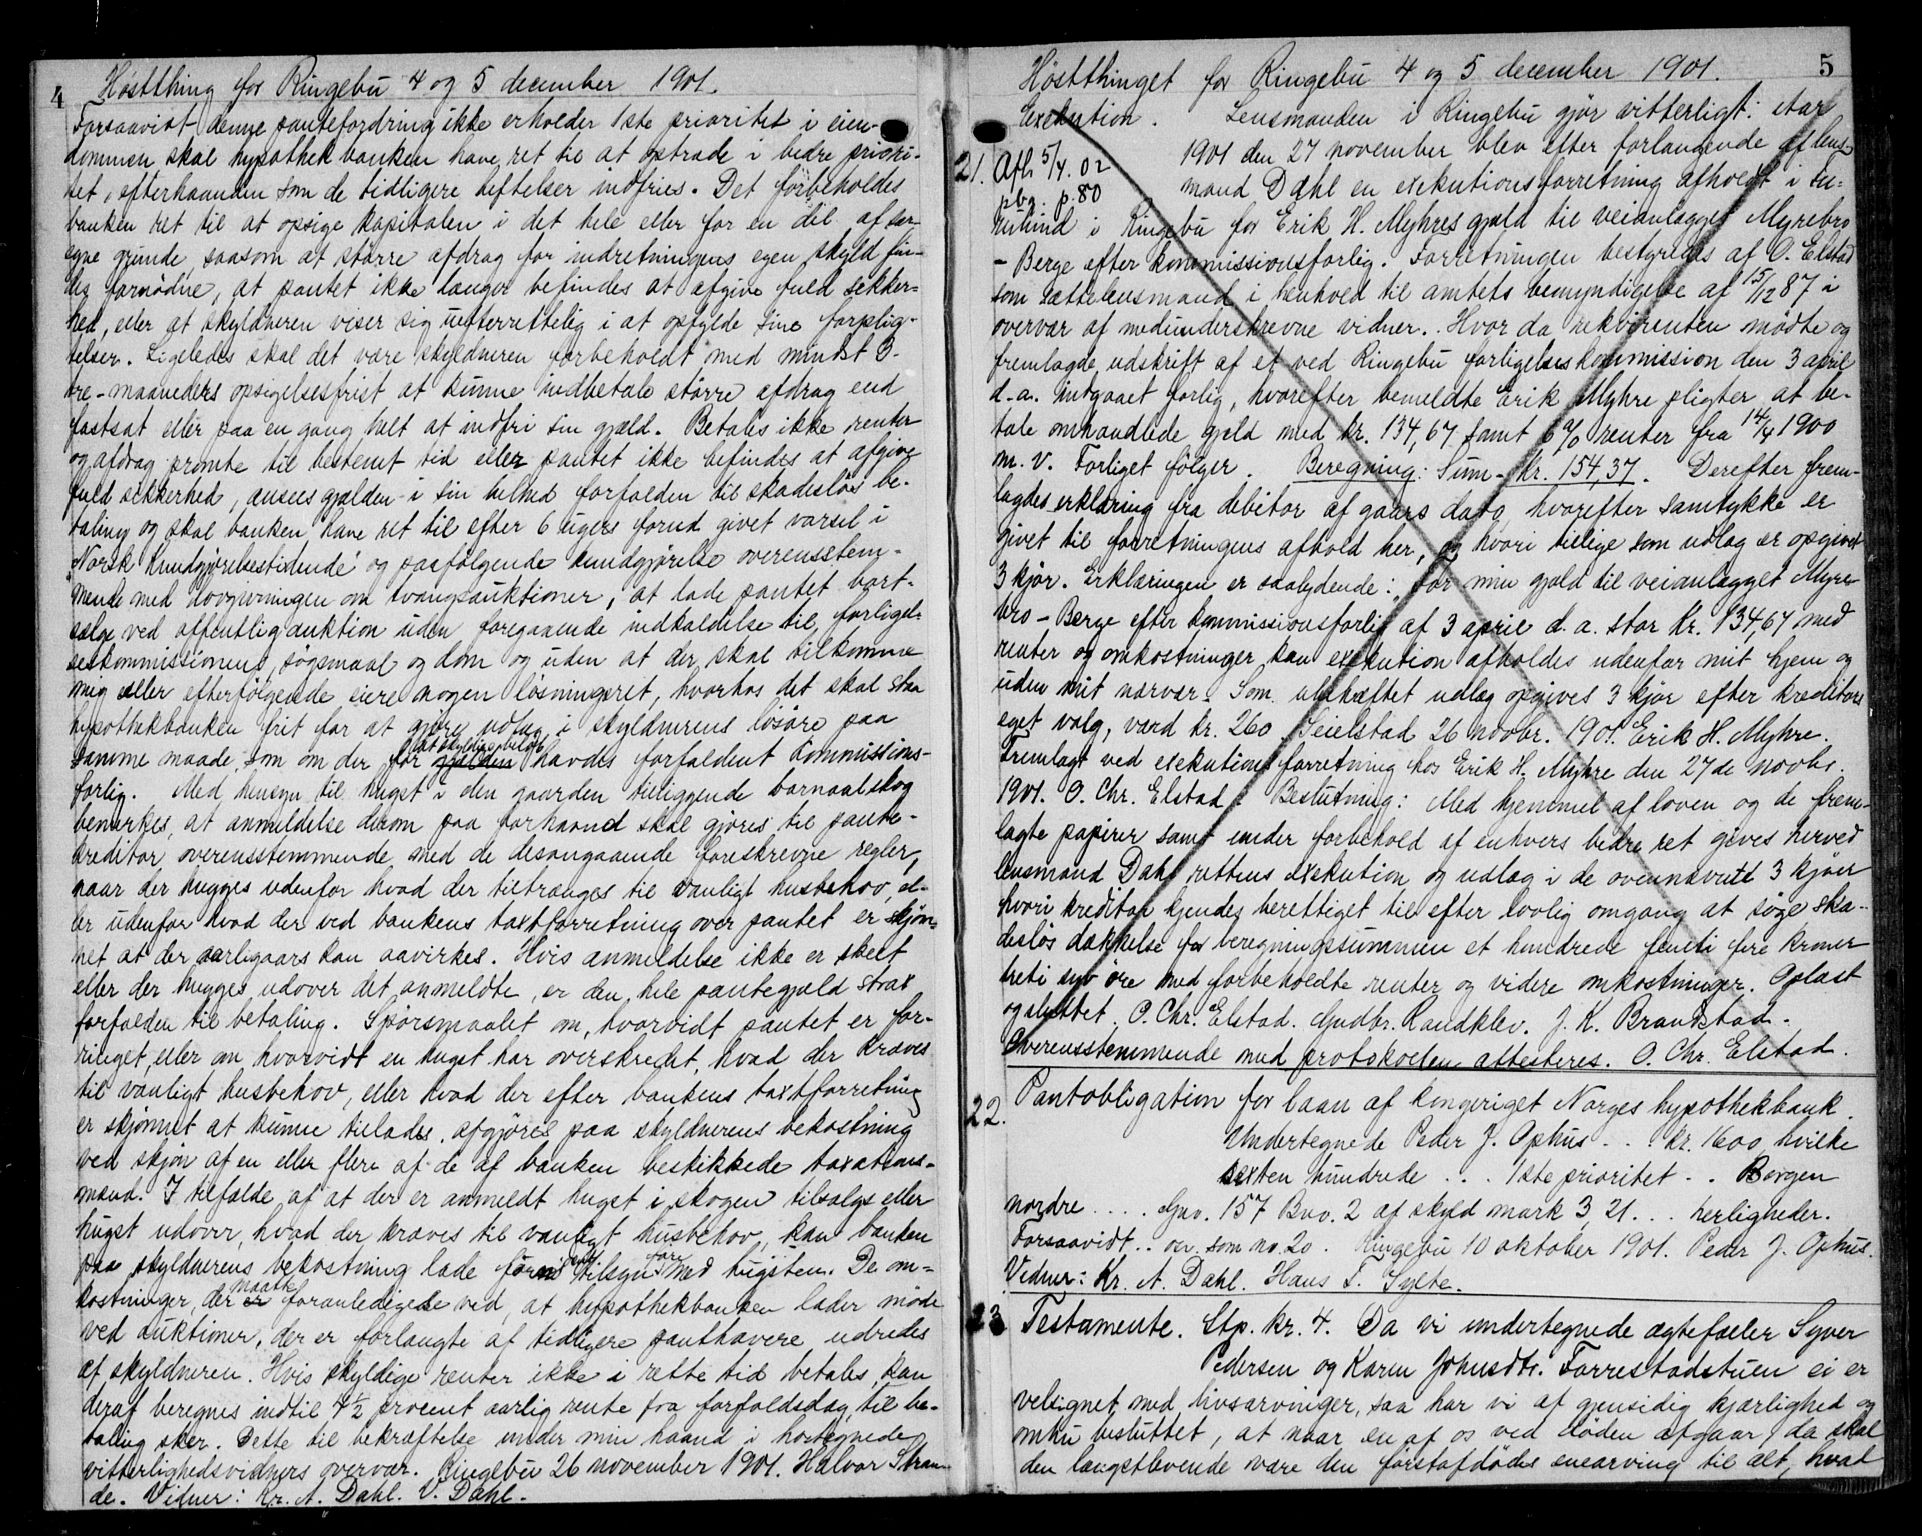 4
Høstthing for Ringebu 4 og 5 december 1901.
Forsaavidt denne pantefordring ikke erholder 1ste prioritet i eien-
dommen skal hypothekbanken have ret til at optræde i bedre priori-
tet, efterhaanden som de tidligere heftelser indfries. Det forbeholdes
banken ret til at opsige kapitalen i det hele eller for en del af sær-
egne grunde, saasom at større afdrag for indretningens egen skyld fin-
des fornødne, at pantet ikke længer befindes at afgive fuld sikker-
hed, eller at skyldneren viser sig uefterrettelig i at opfylde sine forplig-
telser. Ligeledes skal det være skyldneren forbeholdt med mindst 3-
tre-maaneders opsigelsesfrist at kunne indbetale større afdrag end
fastsat eller paa en gang helt at indfri sin gjæld. Betales ikke renter
og afdrag promte til bestemt tid eller pantet ikke befindes at afgive
fuld sikkerhed, ansees gjælden i sin helhed forfalden til skadesløs be-
taling og skal banken have ret til efter 6 ugers forud givet varsel i
"Norsk Kundgjørelsestidende" og paafølgende kundgjørelse overensstem-
mende med lovgivningen om tvangsauktioner, at lade pantet bort-
sælge ved offentlig auktion uden foregaaende indkaldelse til forligel-
seskommissionens, søgsmaal og dom og uden at der skal tilkomme
mig eller efterfølgende eiere nogen løsningsret, hvorhos det skal staa
hypothekbanken frit for at gjøre udlæg i skyldnerens løsøre paa
samme maade, som om der for det skyldige beløb gjælden havdes forfaldent kommissions-
forlig. Med hensyn til hugst i den gaarden tilliggende barnaalskog
bemerkes, at anmeldelse derom paa forhaand skal gjøres til pante-
kreditor overensstemmende med de desangaaende foreskrevne regler,
naar der hugges udenfor hvad der tiltrænges til vanligt husbehov, el-
er udenfor hvad der ved bankens taxtforretning over pantet er skjøn-
net at der aarligaars kan aavirkes. Hvis anmeldelse ikke er skeet
eller der hugges udover det anmeldte, er den hele pantegjæld strax
forfalden til betaling. Spørsmaalet om, hvorvidt pantet er for-
ringet, eller om hvorvidt en hugst har overskredet, hvad der kræves
til vanligt husbehov, eller hvad der efter bankens taxtforretning
er skjønnet at kunne tillades, afgjøres paa skyldnerens bekostning
ved skjøn af en eller flere af de af banken beskikkede taxations-
mænd. I tilfælde af at der er anmeldt hugst i skogen tilsalgs eller
hugst udover, hvad der kræves til vanligt husbehov, kan banken
paa skyldnerens bekostning lade føre tilsyn med hugsten. De om-
kostninger, der maatte er foranledigede ved, at hypothekbanken lader møde
ved auktioner, der er forlangte af tidligere panthavere udredes
af skyldneren. Hvis skyldige renter ikke i rette tid betales, kan
deraf beregnes indtil 4½ procent aarlig rente fra forfaldsdag, til be-
taling sker. Dette til bekræftelse under min haand i hostegnede
vitterlighedsvidners overvær. Ringebu 26 november 1901. Halvor Stran-
de. Vidner: Kr. A. Dahl. V. Dahl.
5
Høstthinget for Ringebu 4 og 5 december 1901.
Exekution. Lensmanden i Ringebu gjør vitterligt: Aar
21. Afl. 5/4. 02 1901 den 27 november blev efter forlangende af lens-
pbg. p. 80 mand Dahl en exekutionsforretning afholdt i
i Ringebu for Erik H. Myhres gjæld til veianlægget Myrebro
- Berge efter kommissionsforlig. Forretningen bestyredes af O. Elstad
som sættelensmand i henhold til amtets bemyndigelse af 15/12 87 i
overvær af medunderskrevne vidner. Hvor da rekvirenten mødte og
fremlagde udskrift af et ved Ringebu forligelseskommission den 3 april
d.a. indgaaet forlig, hvorefter bemeldte Erik Myhre pligter at be-
tale omhandlede gjæld med kr. 134,67 samt 6% renter fra 14/4 1900
m. v. Forliget følger. Beregning: Sum - kr. 154,37. Derefter frem-
lagdes erklæring fra debitor af gaars dato, hvorefter samtykke er
givet til forretningens afhold her, og hvori tillige som udlæg er opgivet
3 kjør. Erklæringen er saalydende: "For min gjæld til veianlægget Myre-
bro - Berge efter kommissionsforlig af 3 april d.a. stor kr. 134,67 med
renter og omkostninger kan exekution afholdes udenfor mit hjem og
uden mit nærvær. Som ubehæftet udlæg opgives 3 kjør efter kreditors
eget valg, værd kr. 260. Seielstad 26 novbr. 1901. Erik H. Myhre.
Fremlagt ved exekutionsforretning hos Erik H. Myhre den 27de novbr.
1901. O. Chr. Elstad. Beslutning: Med hjemmel af loven og de frem-
lagte papirer samt under forbehold af enhvers bedre ret gives herved
lensmand Dahl rettens exekution og udlæg i de ovennævnte 3 kjør
hvori kreditor kjendes berettiget til efter lovlig omgang at søge ska-
desløs dækkelse for beregningssummen et hundrede femti fire kroner
treti syv øre med forbeholdte renter og videre omkostninger. Oplæst
og sluttet. O. Chr. Elstad. Gudbr. Randklev. J. K. Brandstad.
Overensstemmende med protokollen attesteres. O. Chr. Elstad.
22. Pantobligation for laan af kongeriget Norges hypothekbank.
Undertegnede Peder J. Ophus . . kr. 1600 hvilke
sexten hundrede . . . 1ste prioritet . . Bergen
nordre . . . . Gno. 157 Bno. 2 af skyld mark 3,21 . . . herligheder.
Forsaavidt . . ov. som no. 20. Ringebu 10 oktober 1901. Peder J. Ophus.
Vidner: Kr. A. Dahl. Hans T. Sylte.
23 Testamente. Stp. kr. 4. Da vi undertegnede ægtefæller Syver
Pedersen og Karen Johnsdtr. Forrestadstuen ei er
velsignet med livsarvinger, saa har vi af gjensidig kjærlighed og
omhu besluttet, at naar en af os ved døden afgaar, da skal
den længstlevende være den førstafdødes enearving til alt, hvad